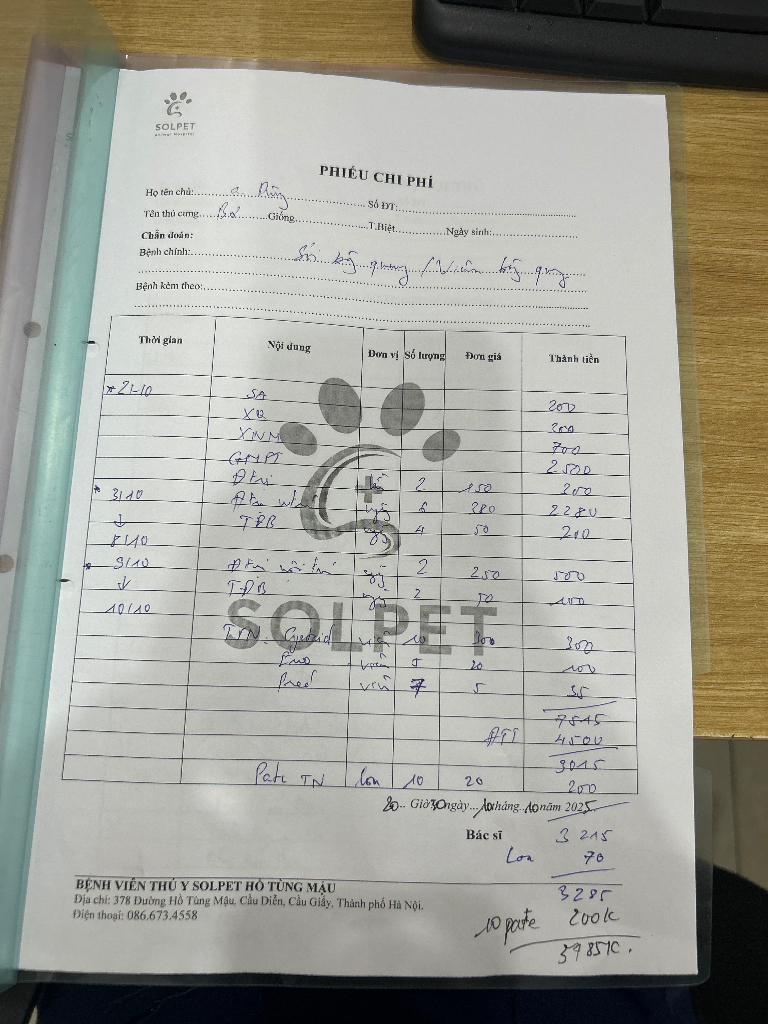 SOLPET
Animal Hospital
PHIẾU CHI PHÍ
Họ tên chủ: a Dũng Số ĐT:
Tên thú cưng Bơ Giống T.Biệt Ngày sinh:
Chẩn đoán:
Bệnh chính: Sỏi bàng quang / Viêm bàng quang
Bệnh kèm theo:
Thời gian Nội dung Đơn vị Số lượng Đơn giá Thành tiền
* 2/10 SA 200
XQ 200
XNM 700
GMPT 2500
Đtrị 2 150 200
* 3/10 Đtrị nội trú ngày 6 380 2280
↓ TĐB ngày 4 50 200
8/10
* 9/10 Đtrị nội trú ngày 2 250 500
↓ TĐB ngày 2 50 100
10/10
SOLPET
TVN. viên 10 300
viên 5 20 100
Pred viên 7 5 35
7515
ĐTT 4500
3015
Pate TN lon 10 20 200
20 Giờ 30 ngày 10 tháng 10 năm 2025
Bác sĩ 3215
Lon 70
3285
10 pate 200k
3985K.
BỆNH VIỆN THÚ Y SOLPET HỒ TÙNG MẬU
Địa chỉ: 378 Đường Hồ Tùng Mậu, Cầu Diễn, Cầu Giấy, Thành phố Hà Nội.
Điện thoại: 086.673.4558